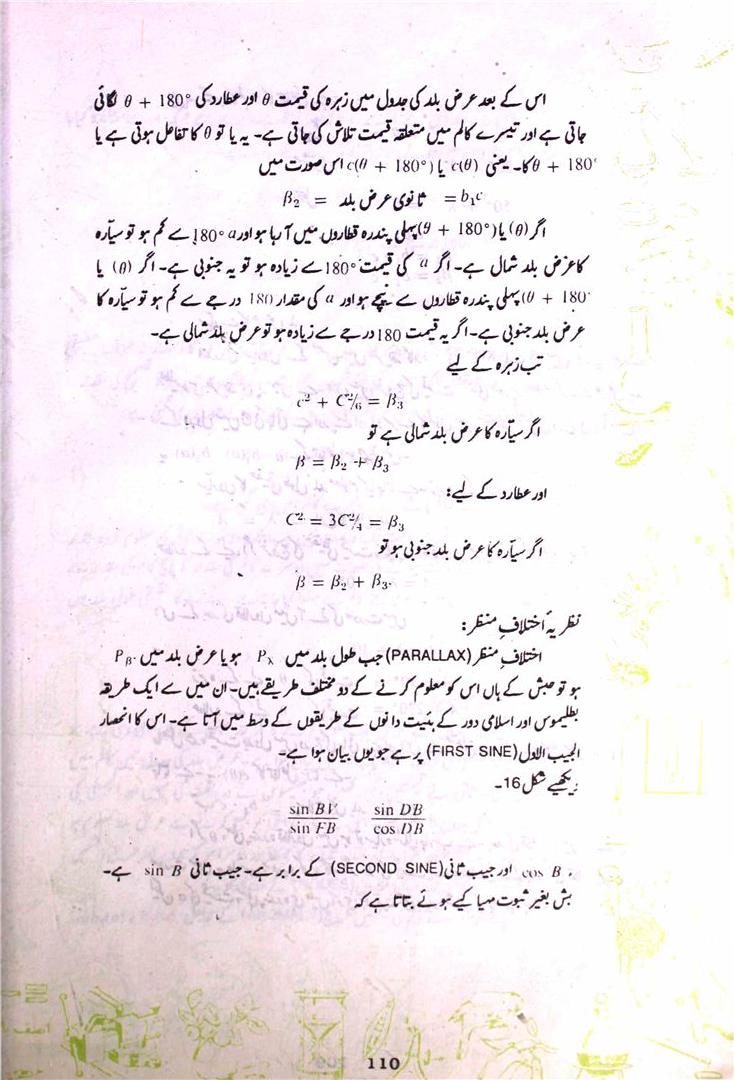 اس کے بعد عرض بلد کی جدول میں زہرہ کی قیمت θ اور عطارد کی θ + 180° لگائی
جاتی ہے اور تیسرے کالم میں متعلقہ قیمت تلاش کی جاتی ہے۔ یہ یا تو θ کا تفاعل ہوتی ہے یا
θ + 180° کا۔ یعنی c(θ) یا c(θ + 180°) اس صورت میں
b₁c = ثانوی عرض بلد = β₂
اگر (θ) یا (θ + 180°) پہلی پندرہ قطاروں میں آ رہا ہو اور a 180° سے کم ہو تو سیّارہ
کا عرض بلد شمال ہے۔ اگر a کی قیمت 180° سے زیادہ ہو تو یہ جنوبی ہے۔ اگر (θ) یا
(θ + 180°) پہلی پندرہ قطاروں سے نیچے ہو اور a کی مقدار 180 درجے سے کم ہو تو سیّارہ کا
عرض بلد جنوبی ہے۔ اگر یہ قیمت 180 درجے سے زیادہ ہو تو عرض بلد شمالی ہے۔
تب زہرہ کے لیے
c² + C²/₆ = β₃
اگر سیّارہ کا عرض بلد شمالی ہے تو
β = β₂ + β₃
اور عطارد کے لیے:
C² = 3C²/₄ = β₃
اگر سیّارہ کا عرض بلد جنوبی ہو تو
β = β₂ + β₃.
نظریۂ اختلافِ منظر:
اختلافِ منظر (PARALLAX) جب طول بلد میں Pχ ہو یا عرض بلد میں Pβ.
ہو تو حبش کے ہاں اس کو معلوم کرنے کے دو مختلف طریقے ہیں۔ ان میں سے ایک طریقہ
بطلیموس اور اسلامی دور کے ہئیت دانوں کے طریقوں کے وسط میں آتا ہے۔ اس کا انحصار
الجیب الاول (FIRST SINE) پر ہے جو یوں بیان ہوا ہے۔
دیکھیے شکل 16۔
sin BV / sin FB    sin DB / cos DB
، cos B اور جیب ثانی (SECOND SINE) کے برابر ہے۔ جیب ثانی sin B ہے۔
بش بغیر ثبوت مہیا کیے ہوئے بتاتا ہے کہ
110